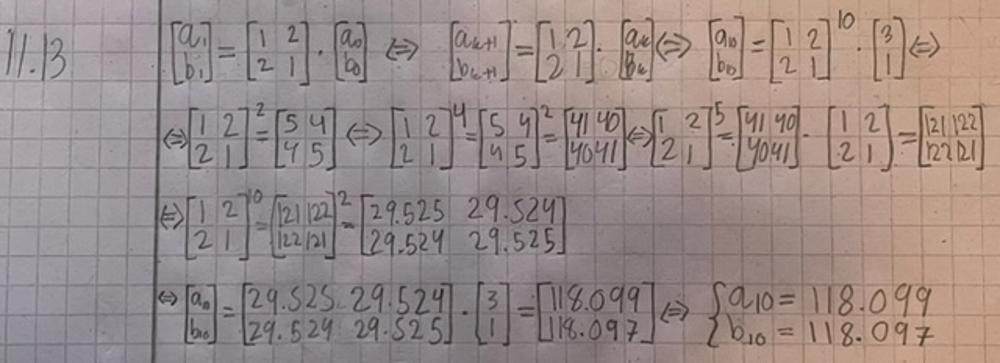 11.13 [a₁ b₁] = [1 2; 2 1] · [a₀ b₀] ⇔ [aₖ₊₁ bₖ₊₁] = [1 2; 2 1] · [aₖ bₖ] ⇔ [a₁₀ b₁₀] = [1 2; 2 1]¹⁰ · [3 1] ⇔
⇔ [1 2; 2 1]² = [5 4; 4 5] ⇔ [1 2; 2 1]⁴ = [5 4; 4 5]² = [41 40; 40 41] ⇔ [1 2; 2 1]⁵ = [41 40; 40 41] · [1 2; 2 1] = [121 122; 122 121]
⇔ [1 2; 2 1]¹⁰ = [121 122; 122 121]² = [29.525 29.524; 29.524 29.525]
⇔ [a₁₀ b₁₀] = [29.525 29.524; 29.524 29.525] · [3 1] = [118.099 118.097] ⇔ { a₁₀ = 118.099 b₁₀ = 118.097